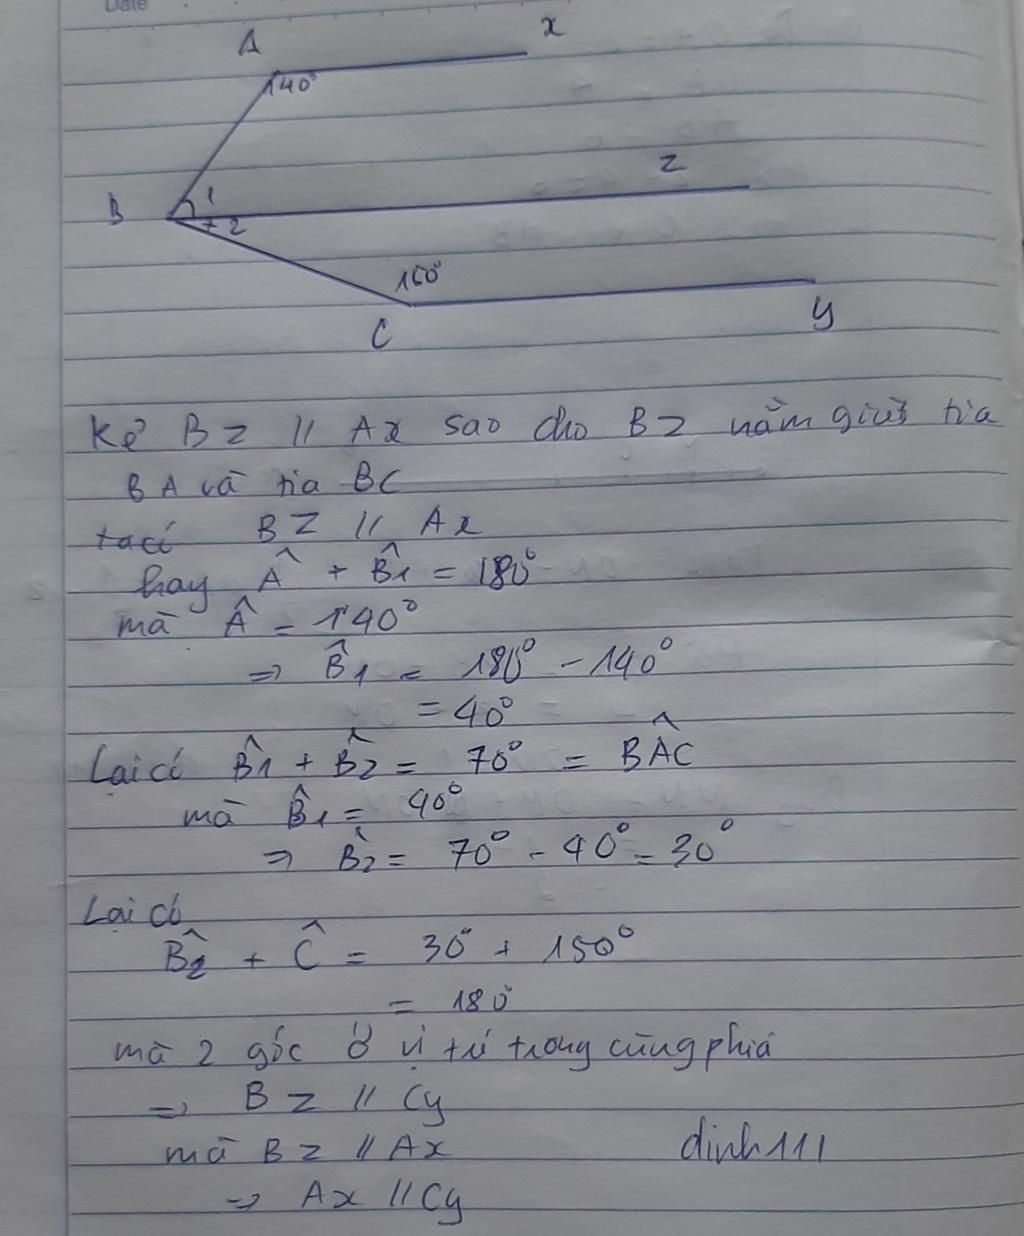 Date
A
x
140°
B
1
2
z
150°
C
y
Kẻ Bz // Ax sao cho Bz nằm giữa tia
BA và tia BC
ta có Bz // Ax
hay Â + B̂1 = 180°
mà Â = 140°
=> B̂1 = 180° - 140°
= 40°
Lại có B̂1 + B̂2 = 70° = BÂC
mà B̂1 = 40°
=> B̂2 = 70° - 40° = 30°
Lại có
B̂2 + Ĉ = 30° + 150°
= 180°
mà 2 góc ở vị trí trong cùng phía
=> Bz // Cy
mà Bz // Ax
dinh111
-> Ax // Cy